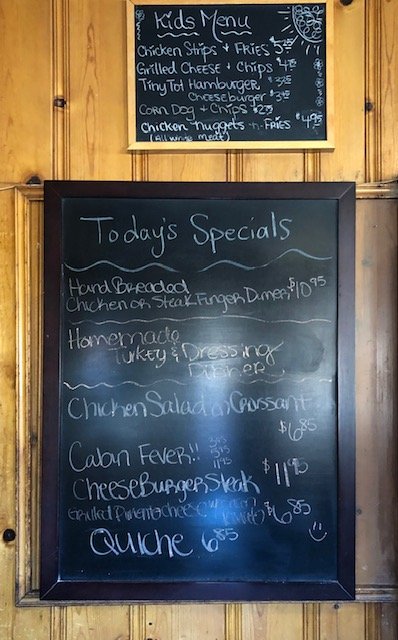 Kids Menu
Chicken Strips & FRIES
Grilled CHEESE & Chips
Tiny Tot Hamburger
Cheeseburger
CORN DOG & CHIPS
Chicken Nuggets -n- FRIES $4.95
(All white meat)
Today's Specials
Hand Breaded
Chicken or Steak Finger Dinner $10.95
Homemade
Turkey & Dressing
Dinner
Chicken Salad on Croissant
$6.85
Cabin Fever!!
11.95
CheeseBurger Steak $11.95
Grilled Pimento Cheese $6.85
Quiche 6.85